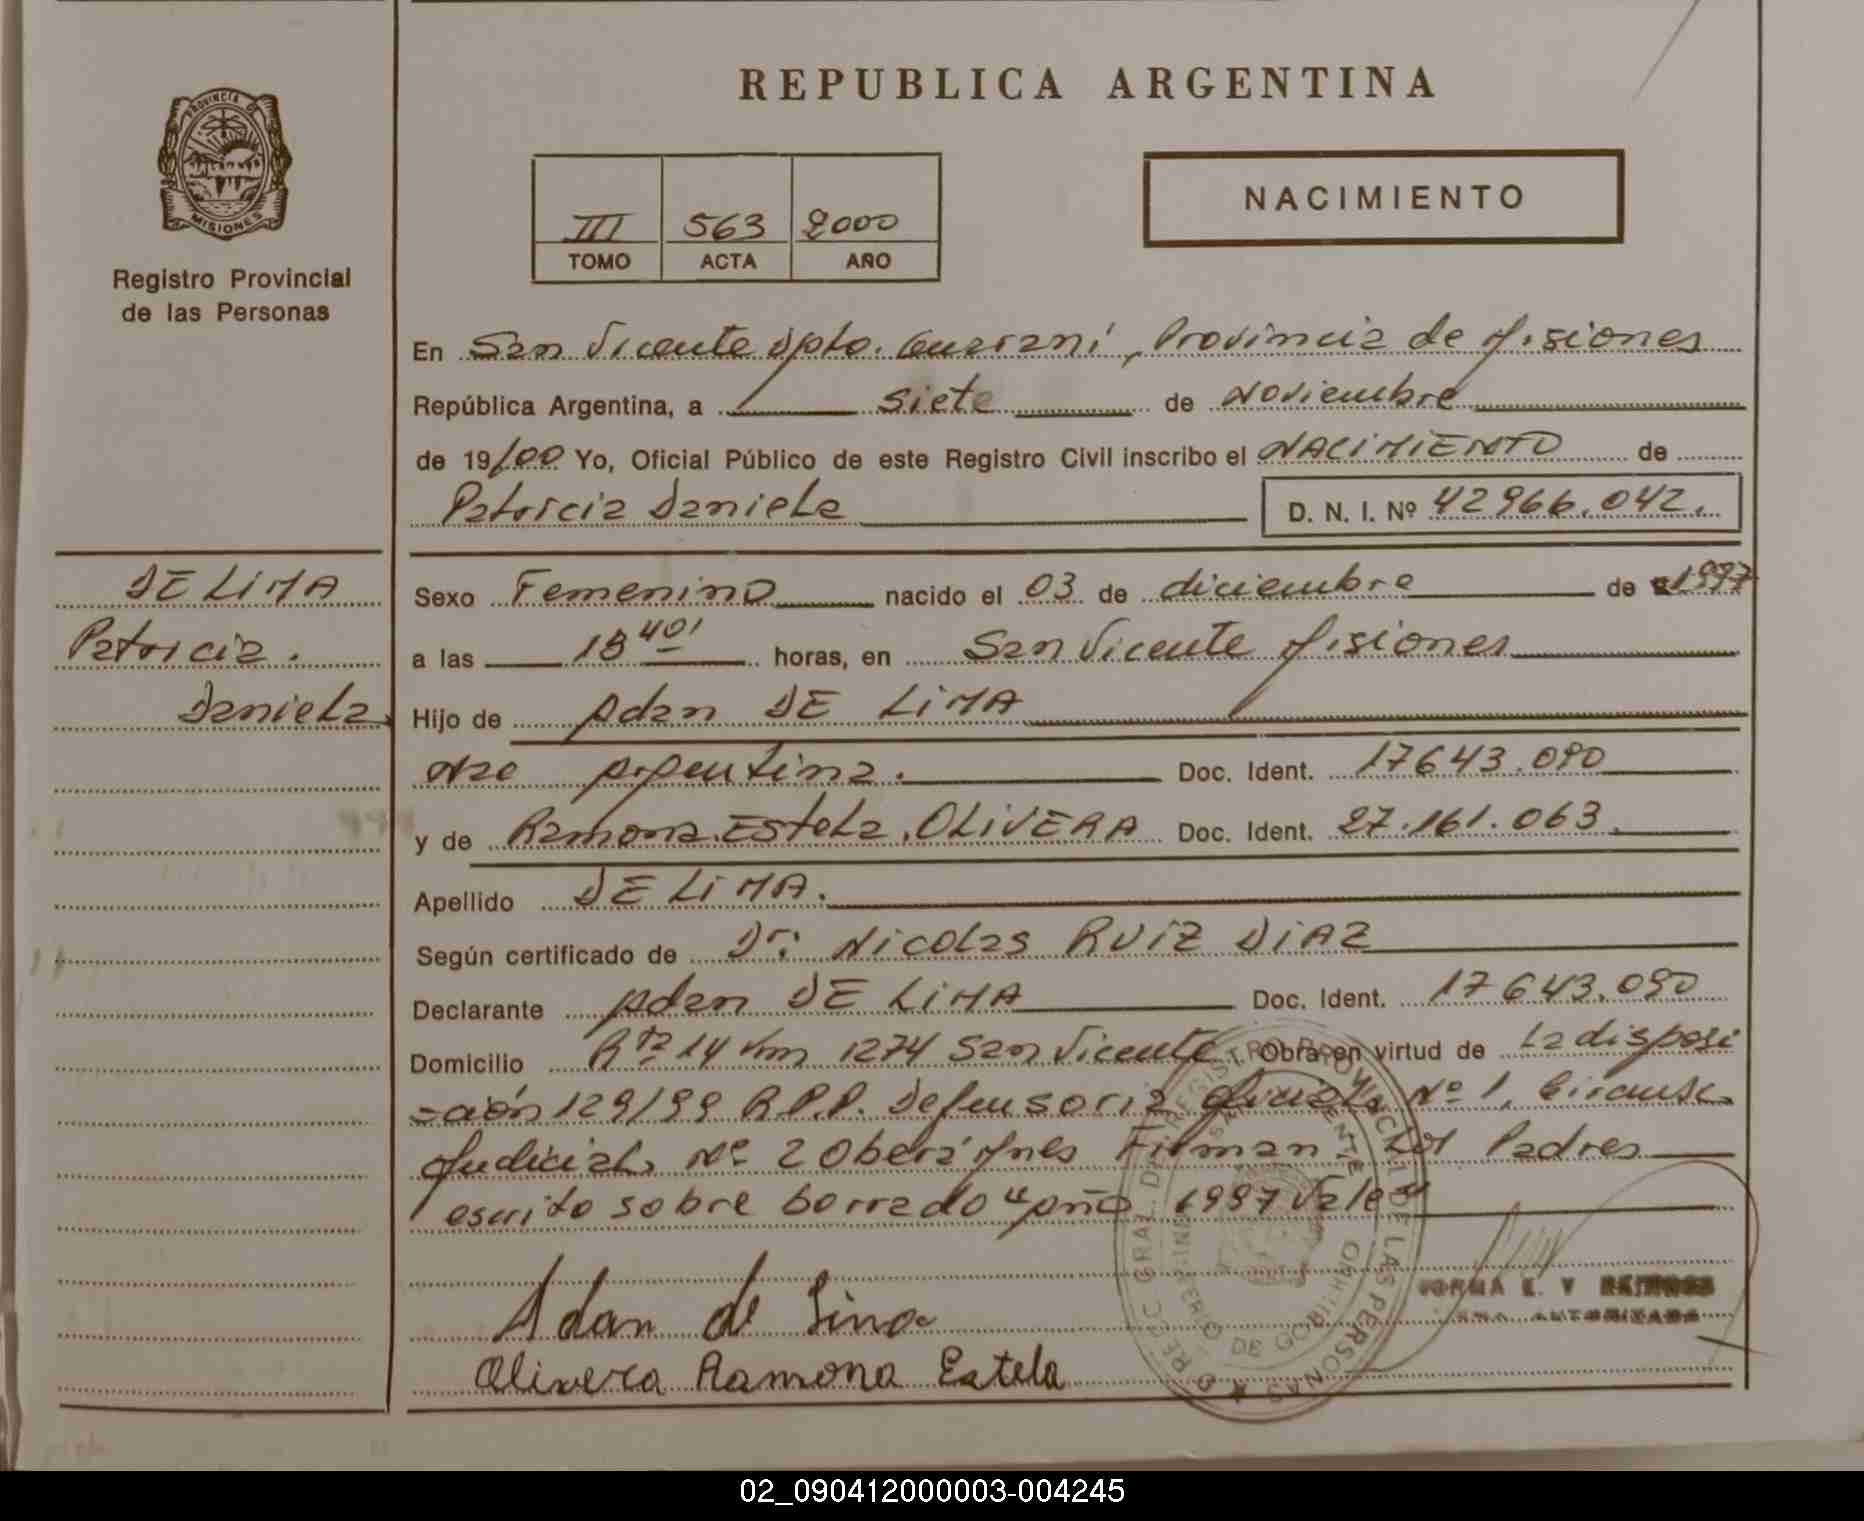 REPUBLICA ARGENTINA
PROVINCIA DE MISIONES
Registro Provincial
de las Personas
III 563 2000
TOMO ACTA AÑO
NACIMIENTO
En San Vicente Dpto. Guaraní, Provincia de Misiones
República Argentina, a siete de Noviembre
de 19/00 Yo, Oficial Público de este Registro Civil inscribo el NACIMIENTO de
Patricia Daniela D. N. I. Nº 42966.042.
DE LIMA
Patricia.
Daniela.
Sexo Femenino nacido el 03 de diciembre de 1997
a las 18 40' horas, en San Vicente Misiones
Hijo de Adan DE LIMA
Nac Argentina. Doc. Ident. 17643.090
y de Ramona Estela OLIVERA Doc. Ident. 27.161.063.
Apellido DE LIMA.
Según certificado de Dr: Nicolas RUIZ DIAZ
Declarante Adan DE LIMA Doc. Ident. 17643.090
Domicilio Rta 14 Km 1274 San Vicente. Obra en virtud de La disposi
=ción 129/99 R.P.P. Defensoria Oficial Nº 1, Circunsc.
Judicial Nº 2 Oberá Mnes Firman Los Padres
escrito sobre borrado "Año 1997 Vale"
Adan de Lima
Olivera Ramona Estela
DIRECC. GRAL. DEL REGISTRO PROVINCIAL DE LAS PERSONAS
SAN VICENTE
MINISTERIO DE GOBIERNO
NORMA E. V
AUTORIZADO
02_090412000003-004245